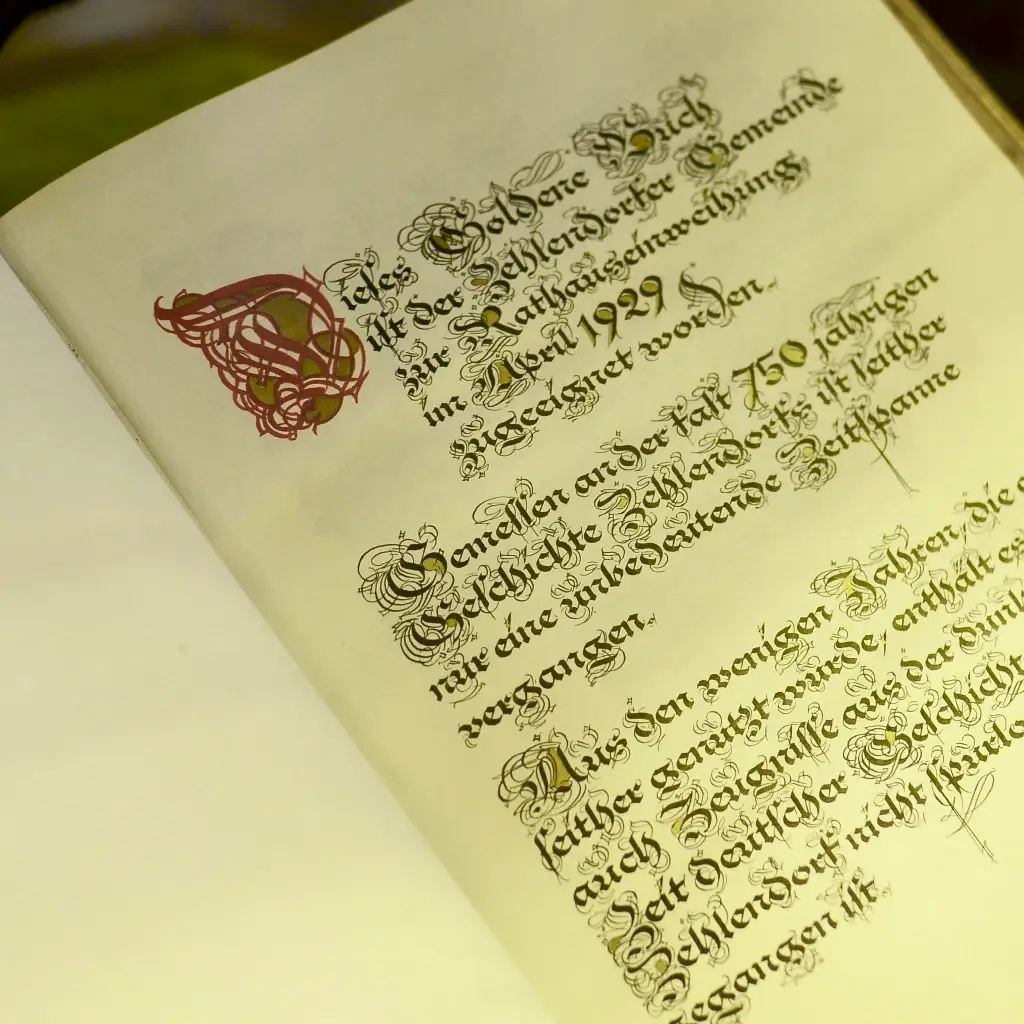 Dieses Goldene Buch
ist der Zehlendorfer Gemeinde
zur Rathauseinweihung
im April 1929
zugeeignet worden.
Gemessen an der fast 750 jährigen
Geschichte Zehlendorfs ist seither
nur eine unbedeutende Zeitspanne
vergangen.
Aus den wenigen Jahren, die
seither genutzt wurde, enthält es
auch Zeugnisse aus der
Zeit deutscher
Zehlendorf nicht
gegangen ist